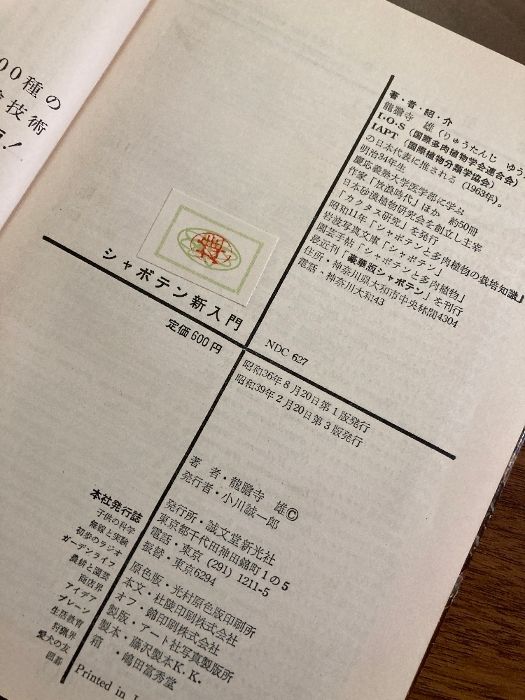 00種の
技術
!
著・者・紹・介
龍膽寺 雄(りゅうたんじ ゆう
I・O・S(国際多肉植物学会連合会)
IAPT(国際植物分類学協会)
の日本代表に推される(1963年)。
明治34年生
慶応義塾大学医学部に学ぶ
作家「放浪時代」ほか 約90冊
日本砂漠植物研究会を創立し主宰
「カクタス研究」を発行
昭和11年「シャボテンと多肉植物の栽培知識」
岩波写真文庫「シャボテン」
園芸手帖「シャボテンと多肉植物」
最近刊「豪華版シャボテン」を刊行
住所・神奈川県大和市中央林間4304
電話・神奈川大和43
シャボテン新入門
定価600円
NDC 627
昭和36年8月20日第1版発行
昭和39年2月20日第3版発行
著 者・龍膽寺 雄©
発行者・小川誠一郎
発行所・誠文堂新光社
東京都千代田神田錦町1の5
電話・東京(291)1211-5
振替・東京6294
原色版・光村原色版印刷所
本文・杜陵印刷株式会社
オフ・錦印刷株式会社
製版・アート社写真製版所
製本・藤沢製本K.K.
箱 ・嶋田富秀堂
本社発行誌
子供の科学
無線と実験
初歩のラジオ
ガーデンライフ
農耕と園芸
商店界
アイデア
ブレーン
生活教育
狩猟界
愛犬の友
囲碁
Printed in J